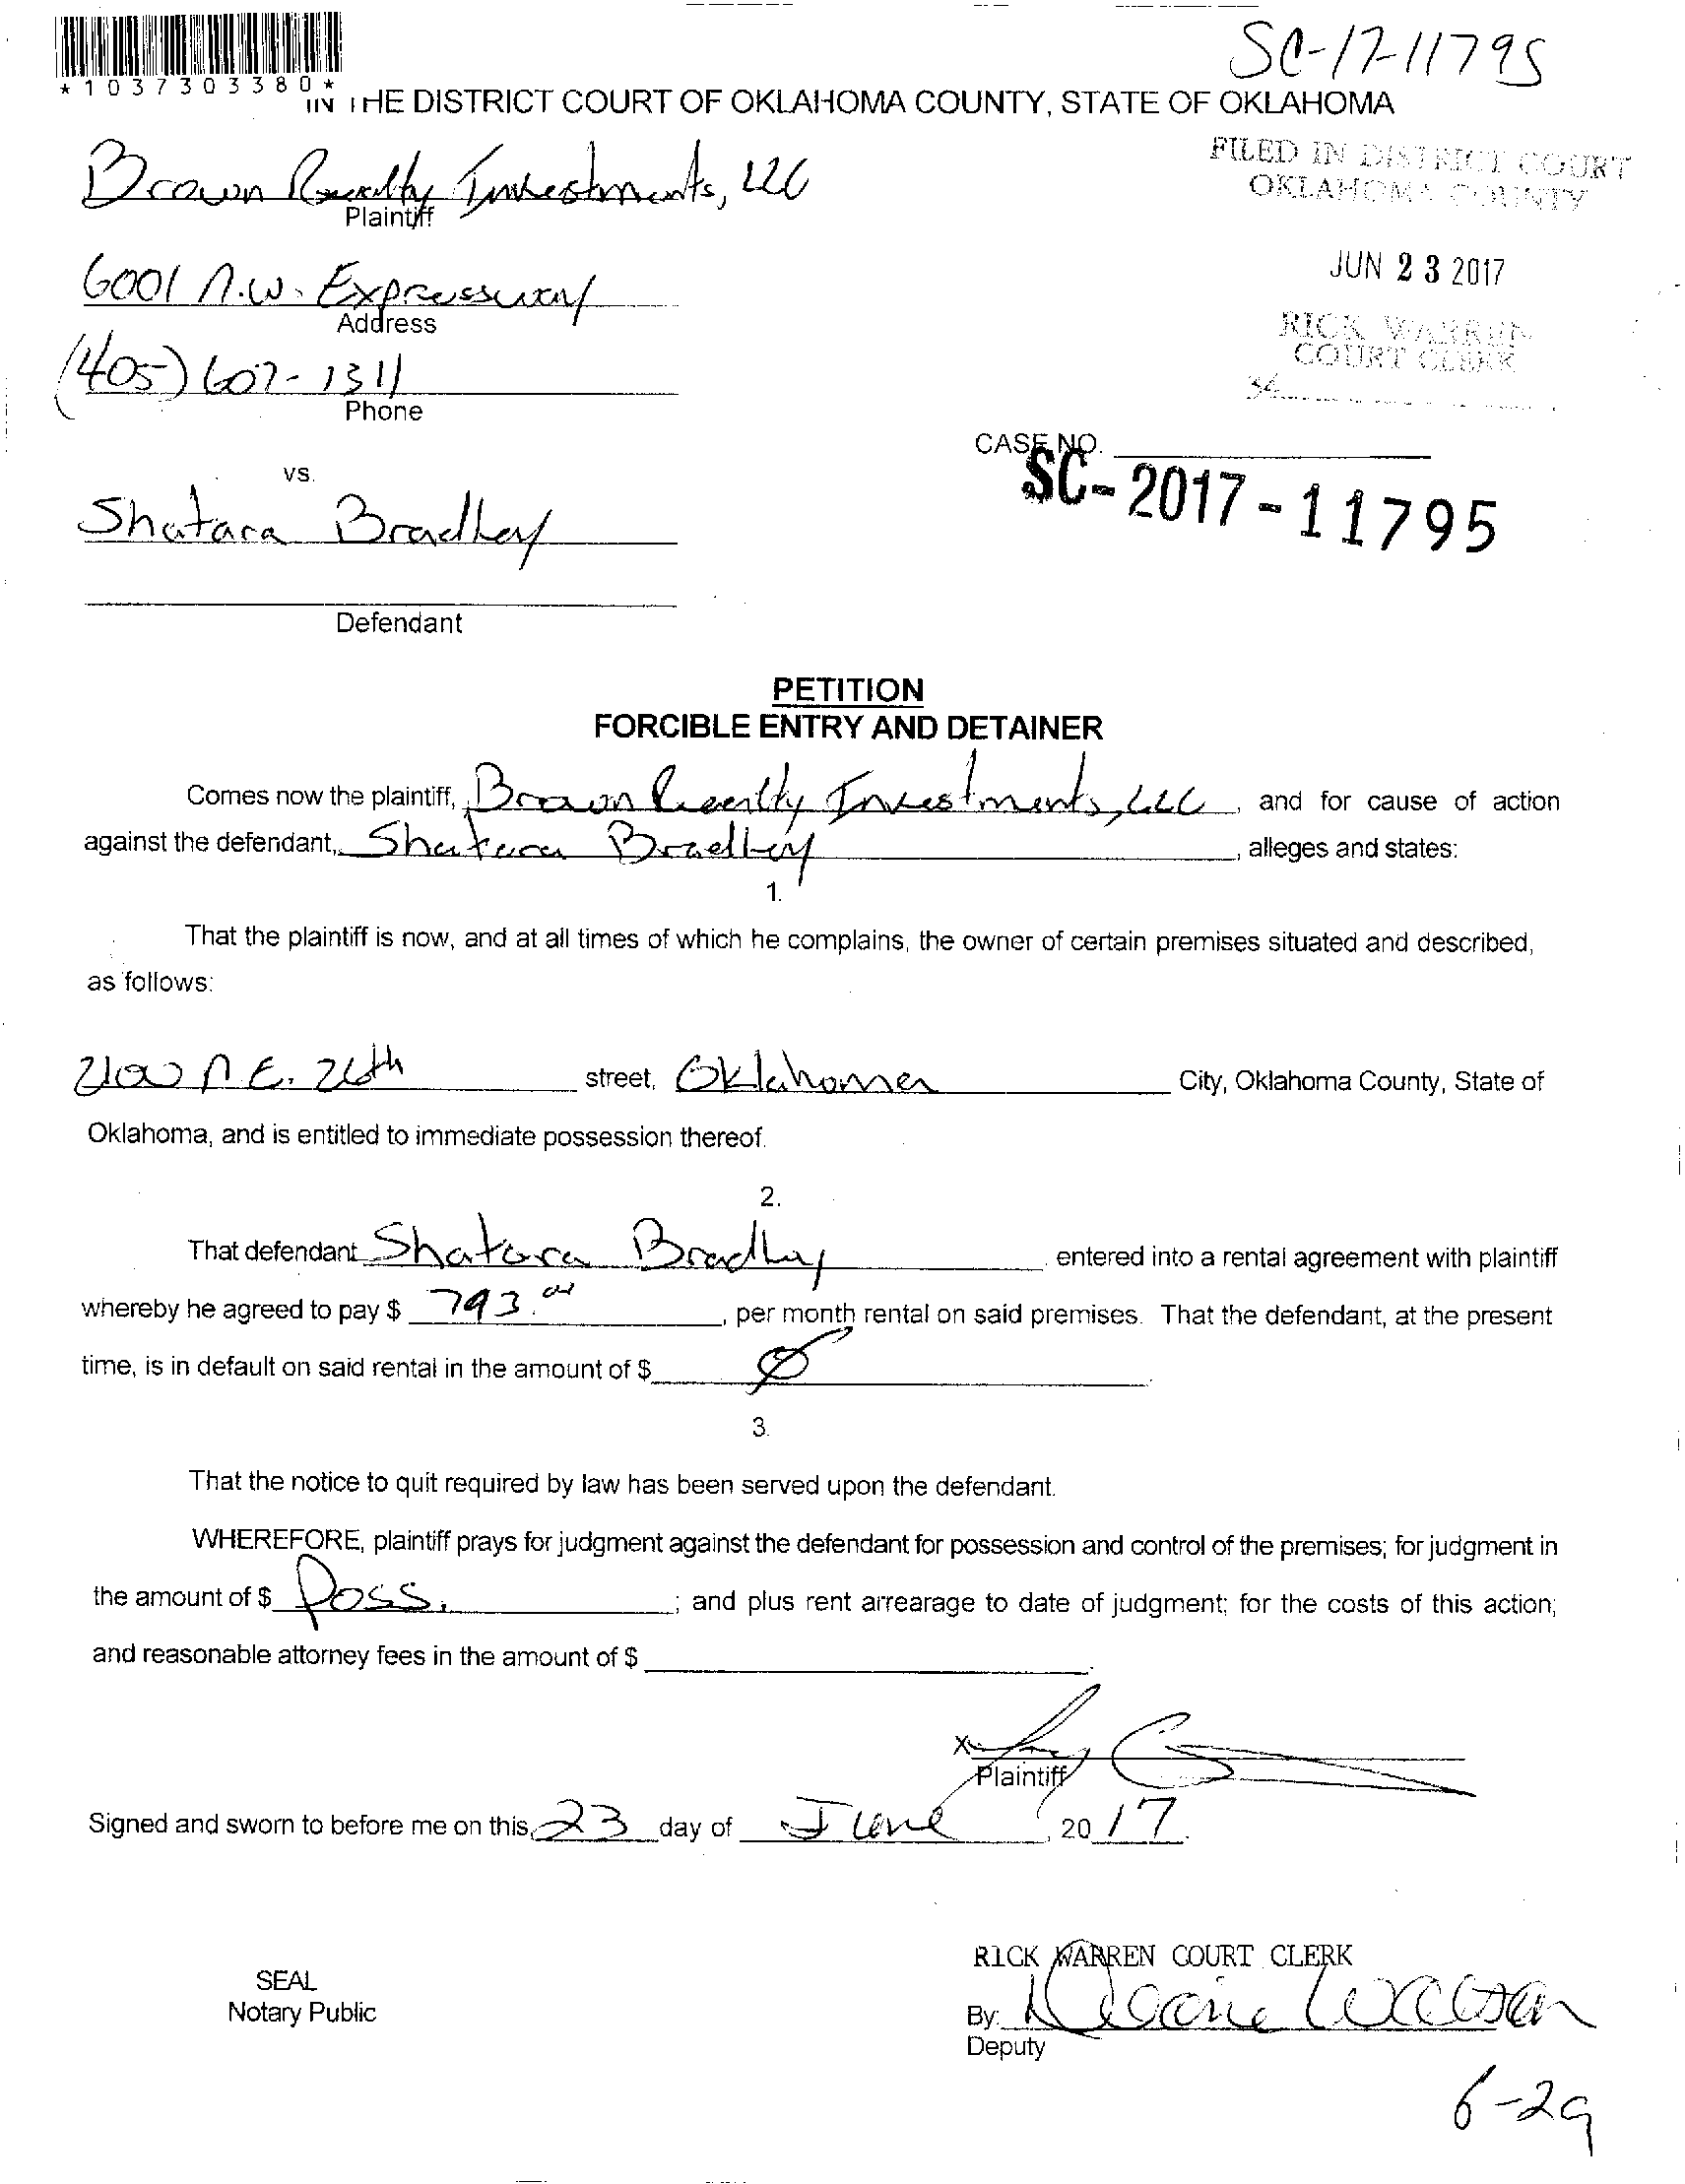 SC-17-11795
*1037303380*
IN THE DISTRICT COURT OF OKLAHOMA COUNTY, STATE OF OKLAHOMA
Brown Realty Investments, LLC
Plaintiff
FILED IN DISTRICT COURT
OKLAHOMA COUNTY
6001 N.W. Expressway
Address
JUN 23 2017
(405) 607-1311
Phone
RICK WARREN
COURT CLERK
CASE NO.
SC-2017-11795
vs.
Shatara Bradley
Defendant
PETITION
FORCIBLE ENTRY AND DETAINER
Comes now the plaintiff, Brown Realty Investments, LLC, and for cause of action
against the defendant, Shatara Bradley, alleges and states:
1.
That the plaintiff is now, and at all times of which he complains, the owner of certain premises situated and described,
as follows:
2100 N.E. 26th street, Oklahoma City, Oklahoma County, State of
Oklahoma, and is entitled to immediate possession thereof.
2.
That defendant Shatara Bradley entered into a rental agreement with plaintiff
whereby he agreed to pay $ 793.00, per month rental on said premises. That the defendant, at the present
time, is in default on said rental in the amount of $ Ø.
3.
That the notice to quit required by law has been served upon the defendant.
WHEREFORE, plaintiff prays for judgment against the defendant for possession and control of the premises; for judgment in
the amount of $ Poss.; and plus rent arrearage to date of judgment; for the costs of this action;
and reasonable attorney fees in the amount of $
X
Plaintiff
Signed and sworn to before me on this 23 day of June, 2017.
SEAL
Notary Public
RICK WARREN COURT CLERK
By:
Deputy
6-29